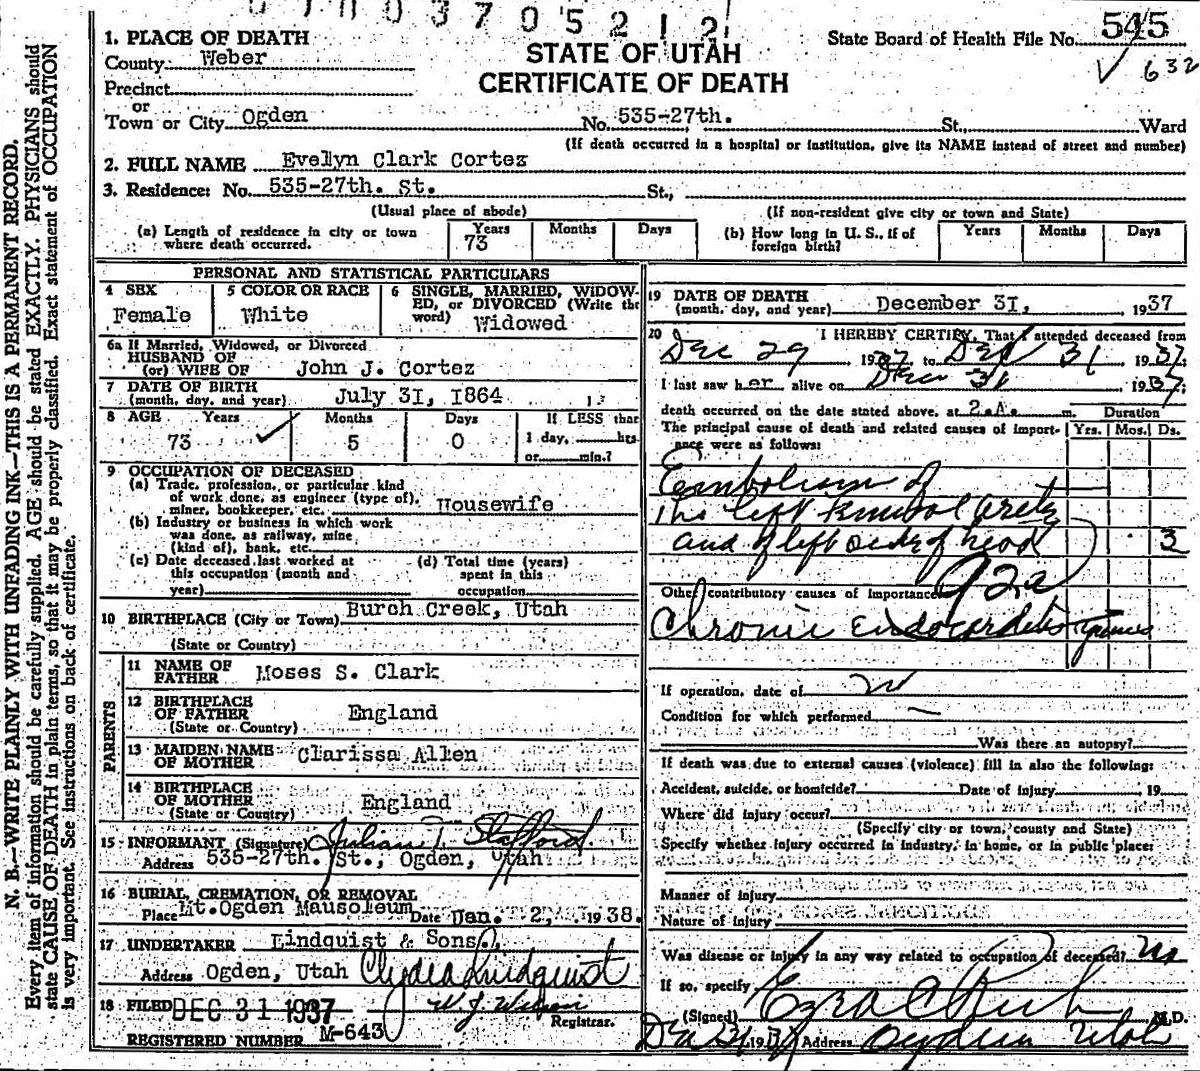 0 1 0 0 3 7 0 5 2 1 2
1. PLACE OF DEATH
County Weber
Precinct
or
Town or City Ogden
STATE OF UTAH
CERTIFICATE OF DEATH
State Board of Health File No. 545
✓ 632
No. 535-27th. St., Ward
(If death occurred in a hospital or institution, give its NAME instead of street and number)
2. FULL NAME Evelyn Clark Cortez
3. Residence: No. 535-27th. St. St.,
(Usual place of abode) (If non-resident give city or town and State)
(a) Length of residence in city or town where death occurred. Years 73 Months Days
(b) How long in U. S., if of foreign birth? Years Months Days
PERSONAL AND STATISTICAL PARTICULARS
4 SEX Female
5 COLOR OR RACE White
6 SINGLE, MARRIED, WIDOWED, or DIVORCED (Write the word) Widowed
6a If Married, Widowed, or Divorced
HUSBAND OF
(or) WIFE OF John J. Cortez
7 DATE OF BIRTH
(month, day, and year) July 31, 1864
8 AGE Years 73 ✓ Months 5 Days 0 If LESS than 1 day, hrs. or min.?
9 OCCUPATION OF DECEASED
(a) Trade, profession, or particular kind
of work done, as engineer (type of),
miner, bookkeeper, etc. Housewife
(b) Industry or business in which work
was done, as railway, mine
(kind of), bank, etc.
(c) Date deceased last worked at
this occupation (month and
year)
(d) Total time (years)
spent in this
occupation
10 BIRTHPLACE (City or Town) Burch Creek, Utah
(State or Country)
PARENTS
11 NAME OF FATHER Moses S. Clark
12 BIRTHPLACE OF FATHER England
(State or Country)
13 MAIDEN NAME OF MOTHER Clarissa Allen
14 BIRTHPLACE OF MOTHER England
(State or Country)
15 INFORMANT (Signature) Stafford
Address 535-27th. St., Ogden, Utah
16 BURIAL, CREMATION, OR REMOVAL
Place Mt. Ogden Mausoleum Date Jan. 2, 1938.
17 UNDERTAKER Lindquist & Sons
Address Ogden, Utah Clyde Lindquist
18 FILED DEC 31 1937
Registrar.
REGISTERED NUMBER M-643
19 DATE OF DEATH
(month, day, and year) December 31, 1937
20 I HEREBY CERTIFY, That I attended deceased from
Dec 29 1937 to Dec 31 1937
I last saw her alive on Dec 31 1937
death occurred on the date stated above, at 2.A. m. Duration
The principal cause of death and related causes of importance were as follows: Yrs. Mos. Ds.
Embolism of
the left artery
and of left side of head 3
92a
Other contributory causes of importance
Chronic Endocarditis
If operation, date of
Condition for which performed
Was there an autopsy?
If death was due to external causes (violence) fill in also the following:
Accident, suicide, or homicide? Date of injury 19
Where did injury occur?
(Specify city or town, county and State)
Specify whether injury occurred in industry, in home, or in public place:
Manner of injury
Nature of injury
Was disease or injury in any way related to occupation of deceased? no
If so, specify
(Signed) Ezra C Rich M.D.
Dec 31, 1937 Address Ogden Utah
N. B.—WRITE PLAINLY WITH UNFADING INK—THIS IS A PERMANENT RECORD.
Every item of information should be carefully supplied. AGE should be stated EXACTLY. PHYSICIANS should
state CAUSE OF DEATH in plain terms, so that it may be properly classified. Exact statement of OCCUPATION
is very important. See instructions on back of certificate.